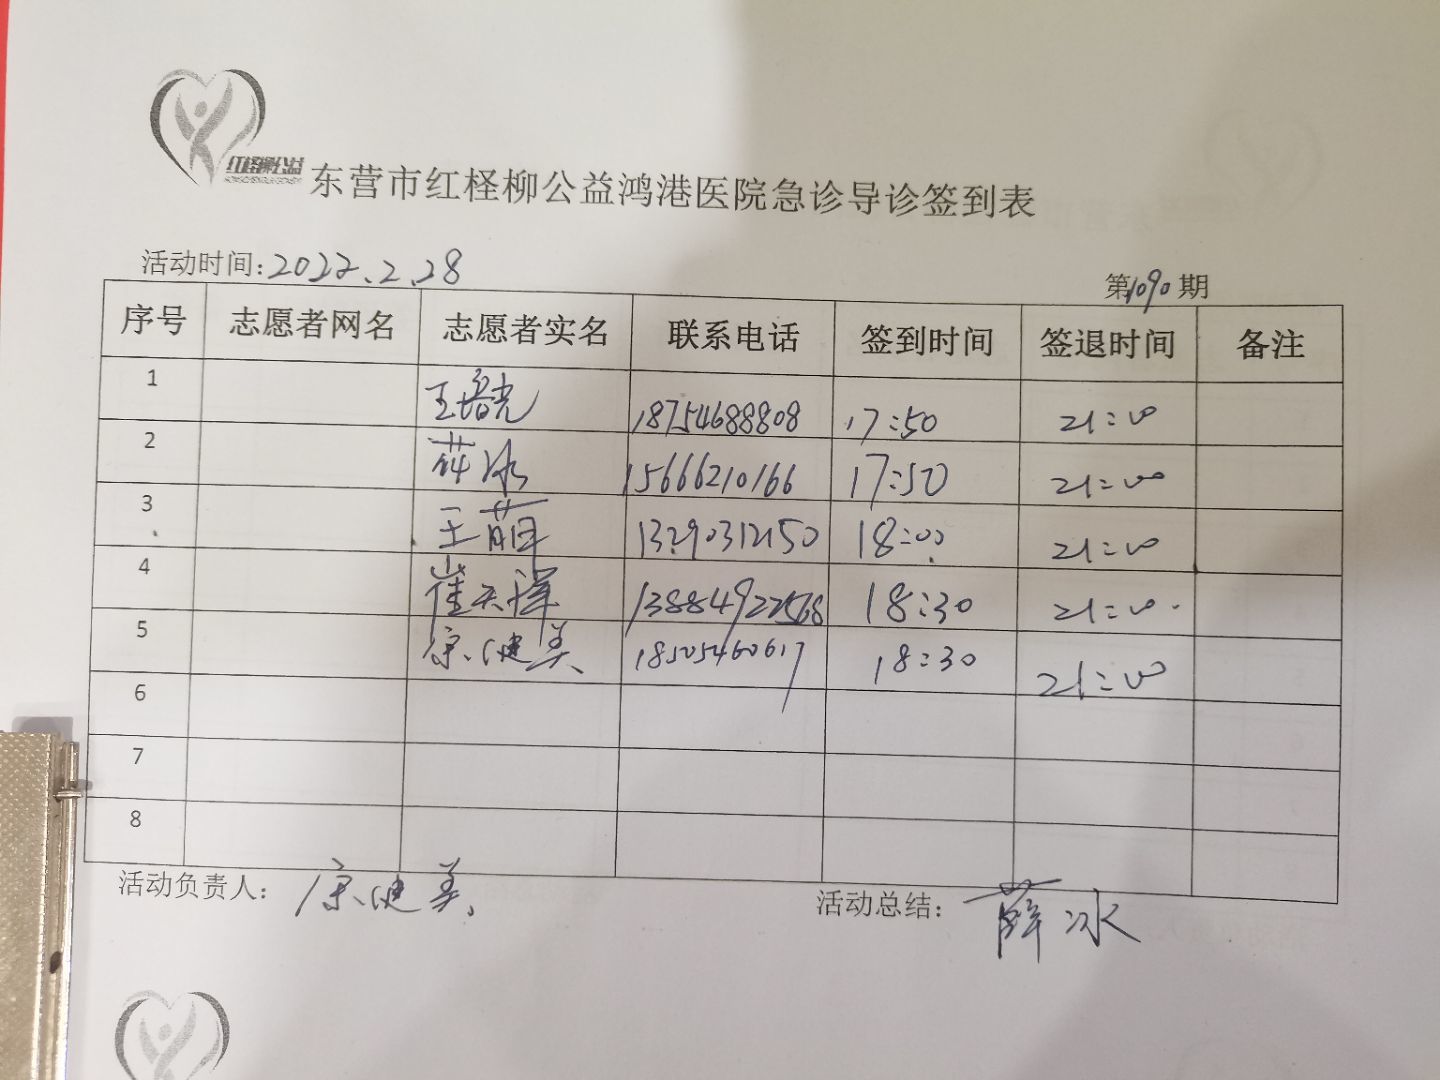 红柽柳公益
东营市红柽柳公益鸿港医院急诊导诊签到表
活动时间:2022.2.28
第1090期
序号 志愿者网名 志愿者实名 联系电话 签到时间 签退时间 备注
1 王培光 18754688808 17:50 21:00
2 薛冰 15666210166 17:50 21:00
3 王萌 13290312150 18:00 21:00
4 崔天祥 13884922568 18:30 21:00
5 宗健美 18505460617 18:30 21:00
6
7
8
活动负责人: 宗健美
活动总结: 薛冰